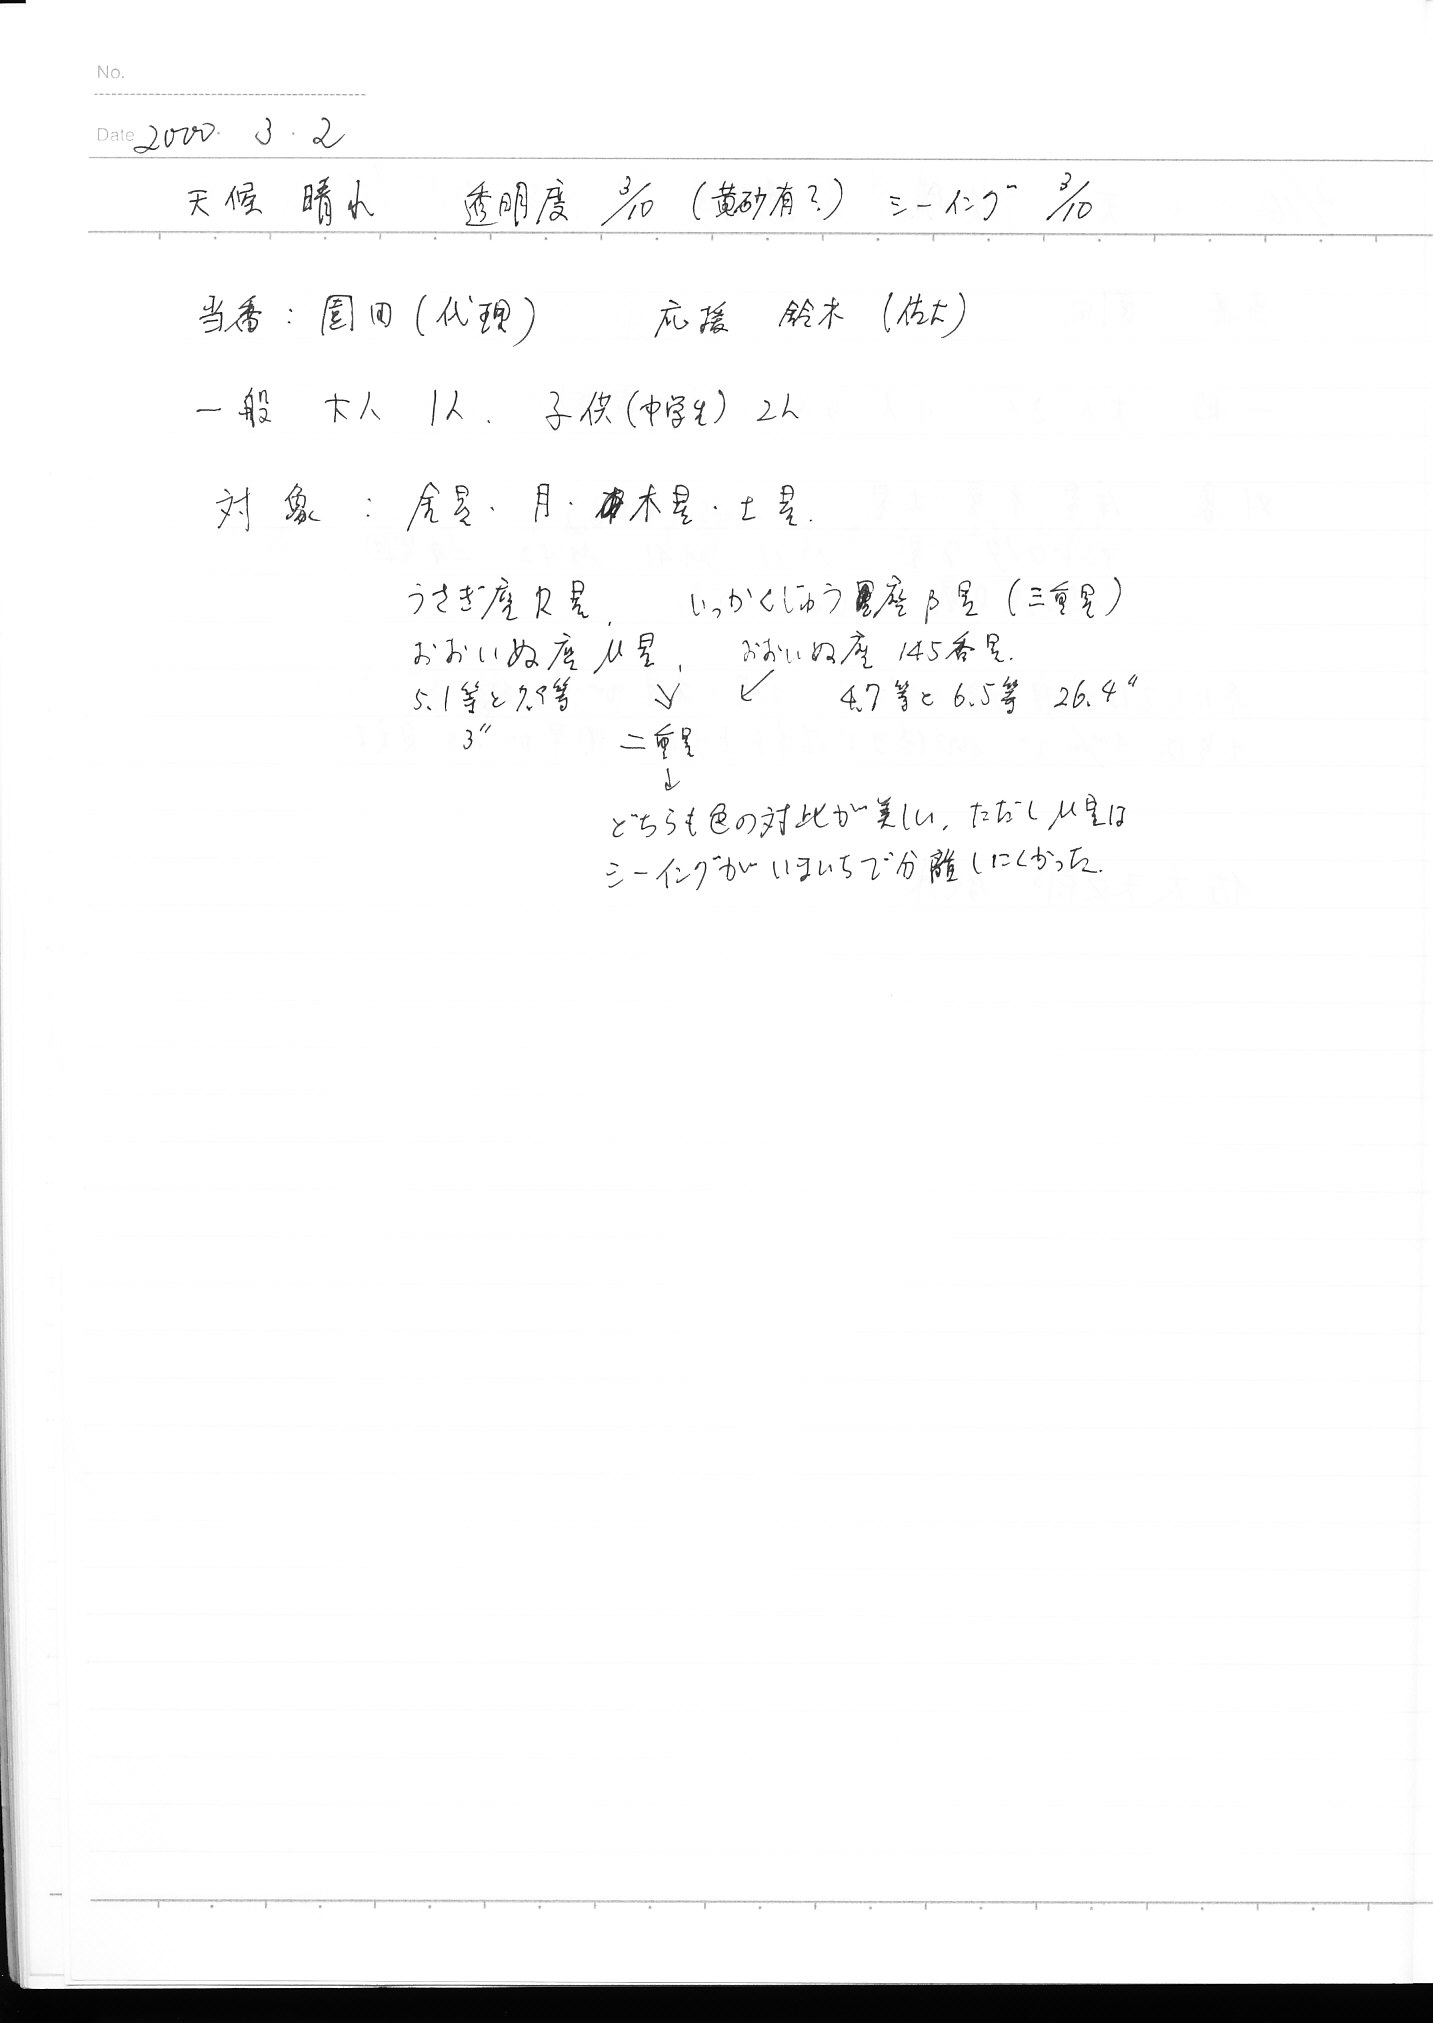 No.
Date 2000・3・2
天候 晴れ 透明度 3/10 (黄砂有?) シーイング 3/10
当番：園田(代理) 応援 鈴木 (佐大)
一般 大人 1人. 子供(中学生) 2人
対象：金星・月・木星・土星.
うさぎ座R星, いっかくじゅう座β星 (三重星)
おおいぬ座μ星, おおいぬ座145番星.
5.1等と7.9等 ↘ ↙ 4.7等と6.5等 26.4″
3″ 二重星
↓
どちらも色の対比が美しい, ただしμ星は
シーイングがいまいちで分離しにくかった.